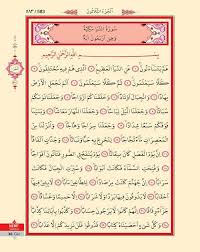 الجزء الثلاثون
سورة النبإ مكية
وهي أربعون آية
بِسْمِ اللَّهِ الرَّحْمٰنِ الرَّحِيمِ
عَمَّ يَتَسَاءَلُونَ عَنِ النَّبَإِ الْعَظِيمِ الَّذِي هُمْ فِيهِ مُخْتَلِفُونَ
كَلَّا سَيَعْلَمُونَ ثُمَّ كَلَّا سَيَعْلَمُونَ أَلَمْ نَجْعَلِ الْأَرْضَ
مِهَادًا وَالْجِبَالَ أَوْتَادًا وَخَلَقْنَاكُمْ أَزْوَاجًا وَجَعَلْنَا نَوْمَكُمْ
سُبَاتًا وَجَعَلْنَا اللَّيْلَ لِبَاسًا وَجَعَلْنَا النَّهَارَ مَعَاشًا وَبَنَيْنَا
فَوْقَكُمْ سَبْعًا شِدَادًا وَجَعَلْنَا سِرَاجًا وَهَّاجًا وَأَنْزَلْنَا مِنَ
الْمُعْصِرَاتِ مَاءً ثَجَّاجًا لِنُخْرِجَ بِهِ حَبًّا وَنَبَاتًا وَجَنَّاتٍ أَلْفَافًا
إِنَّ يَوْمَ الْفَصْلِ كَانَ مِيقَاتًا يَوْمَ يُنْفَخُ فِي الصُّورِ فَتَأْتُونَ
أَفْوَاجًا وَفُتِحَتِ السَّمَاءُ فَكَانَتْ أَبْوَابًا وَسُيِّرَتِ الْجِبَالُ فَكَانَتْ
سَرَابًا إِنَّ جَهَنَّمَ كَانَتْ مِرْصَادًا لِلطَّاغِينَ مَآبًا لَابِثِينَ فِيهَا
أَحْقَابًا لَا يَذُوقُونَ فِيهَا بَرْدًا وَلَا شَرَابًا إِلَّا حَمِيمًا وَغَسَّاقًا
جَزَاءً وِفَاقًا إِنَّهُمْ كَانُوا لَا يَرْجُونَ حِسَابًا وَكَذَّبُوا بِآيَاتِنَا
كِذَّابًا وَكُلَّ شَيْءٍ أَحْصَيْنَاهُ كِتَابًا فَذُوقُوا فَلَنْ نَزِيدَكُمْ إِلَّا عَذَابًا